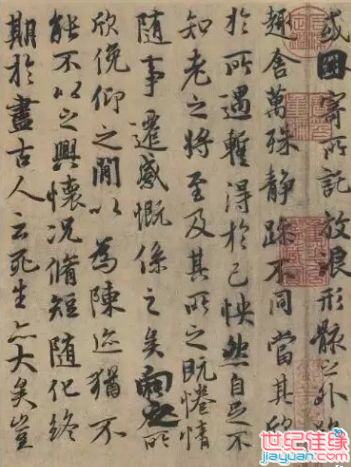 或因寄所託放浪形骸之外
趣舍萬殊静躁不同當其欣
於所遇暫得於己怏然自足不
知老之將至及其所之既惓情
随事遷感慨係之矣向之所
欣俛仰之閒以為陳迹猶不
能不以之興懷况脩短随化終
期於盡古人云死生亦大矣豈
世纪佳缘
jiayuan.com